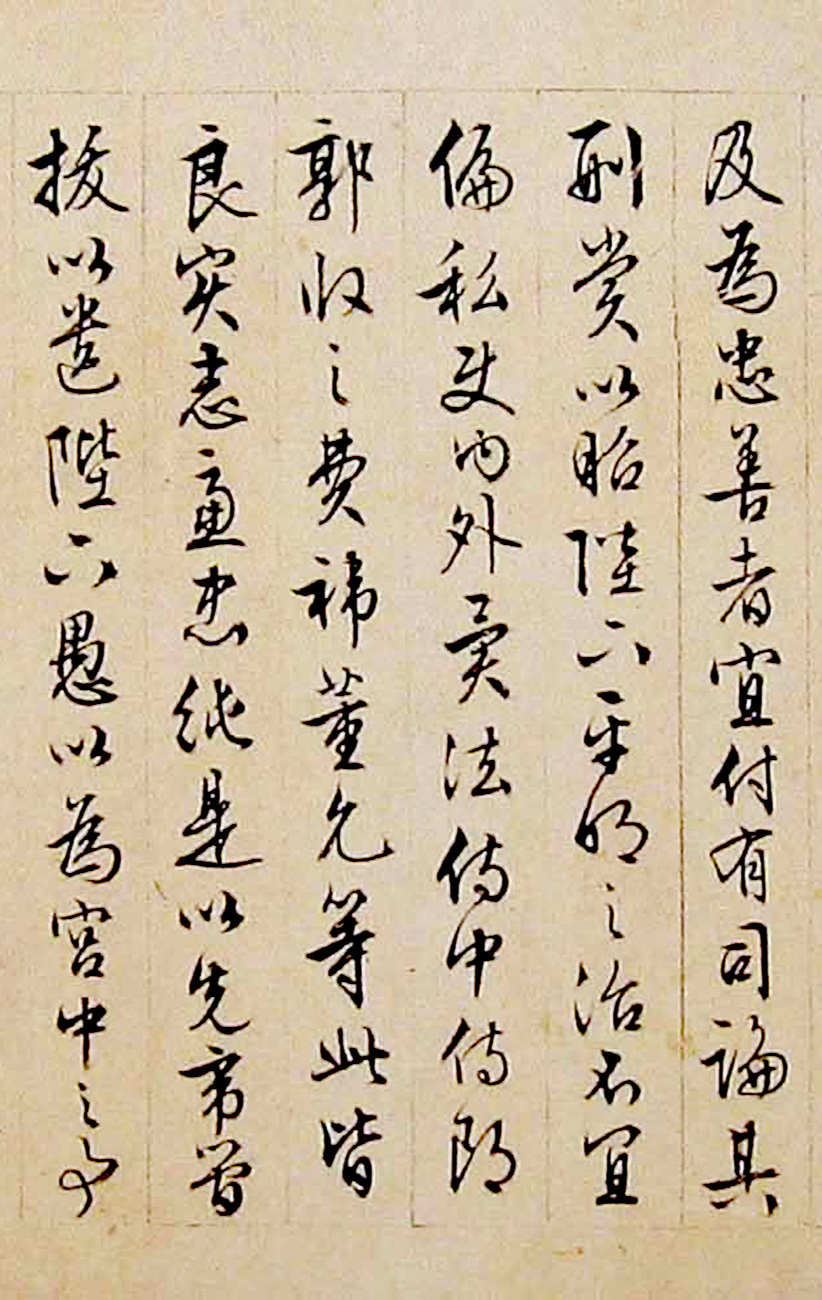 及為忠善者宜付有司論其
刑賞以昭陛下平明之治不宜
偏私使內外異法侍中侍郎
郭收之費禕董允等此皆
良實志慮忠純是以先帝簡
拔以遺陛下愚以為宮中之事